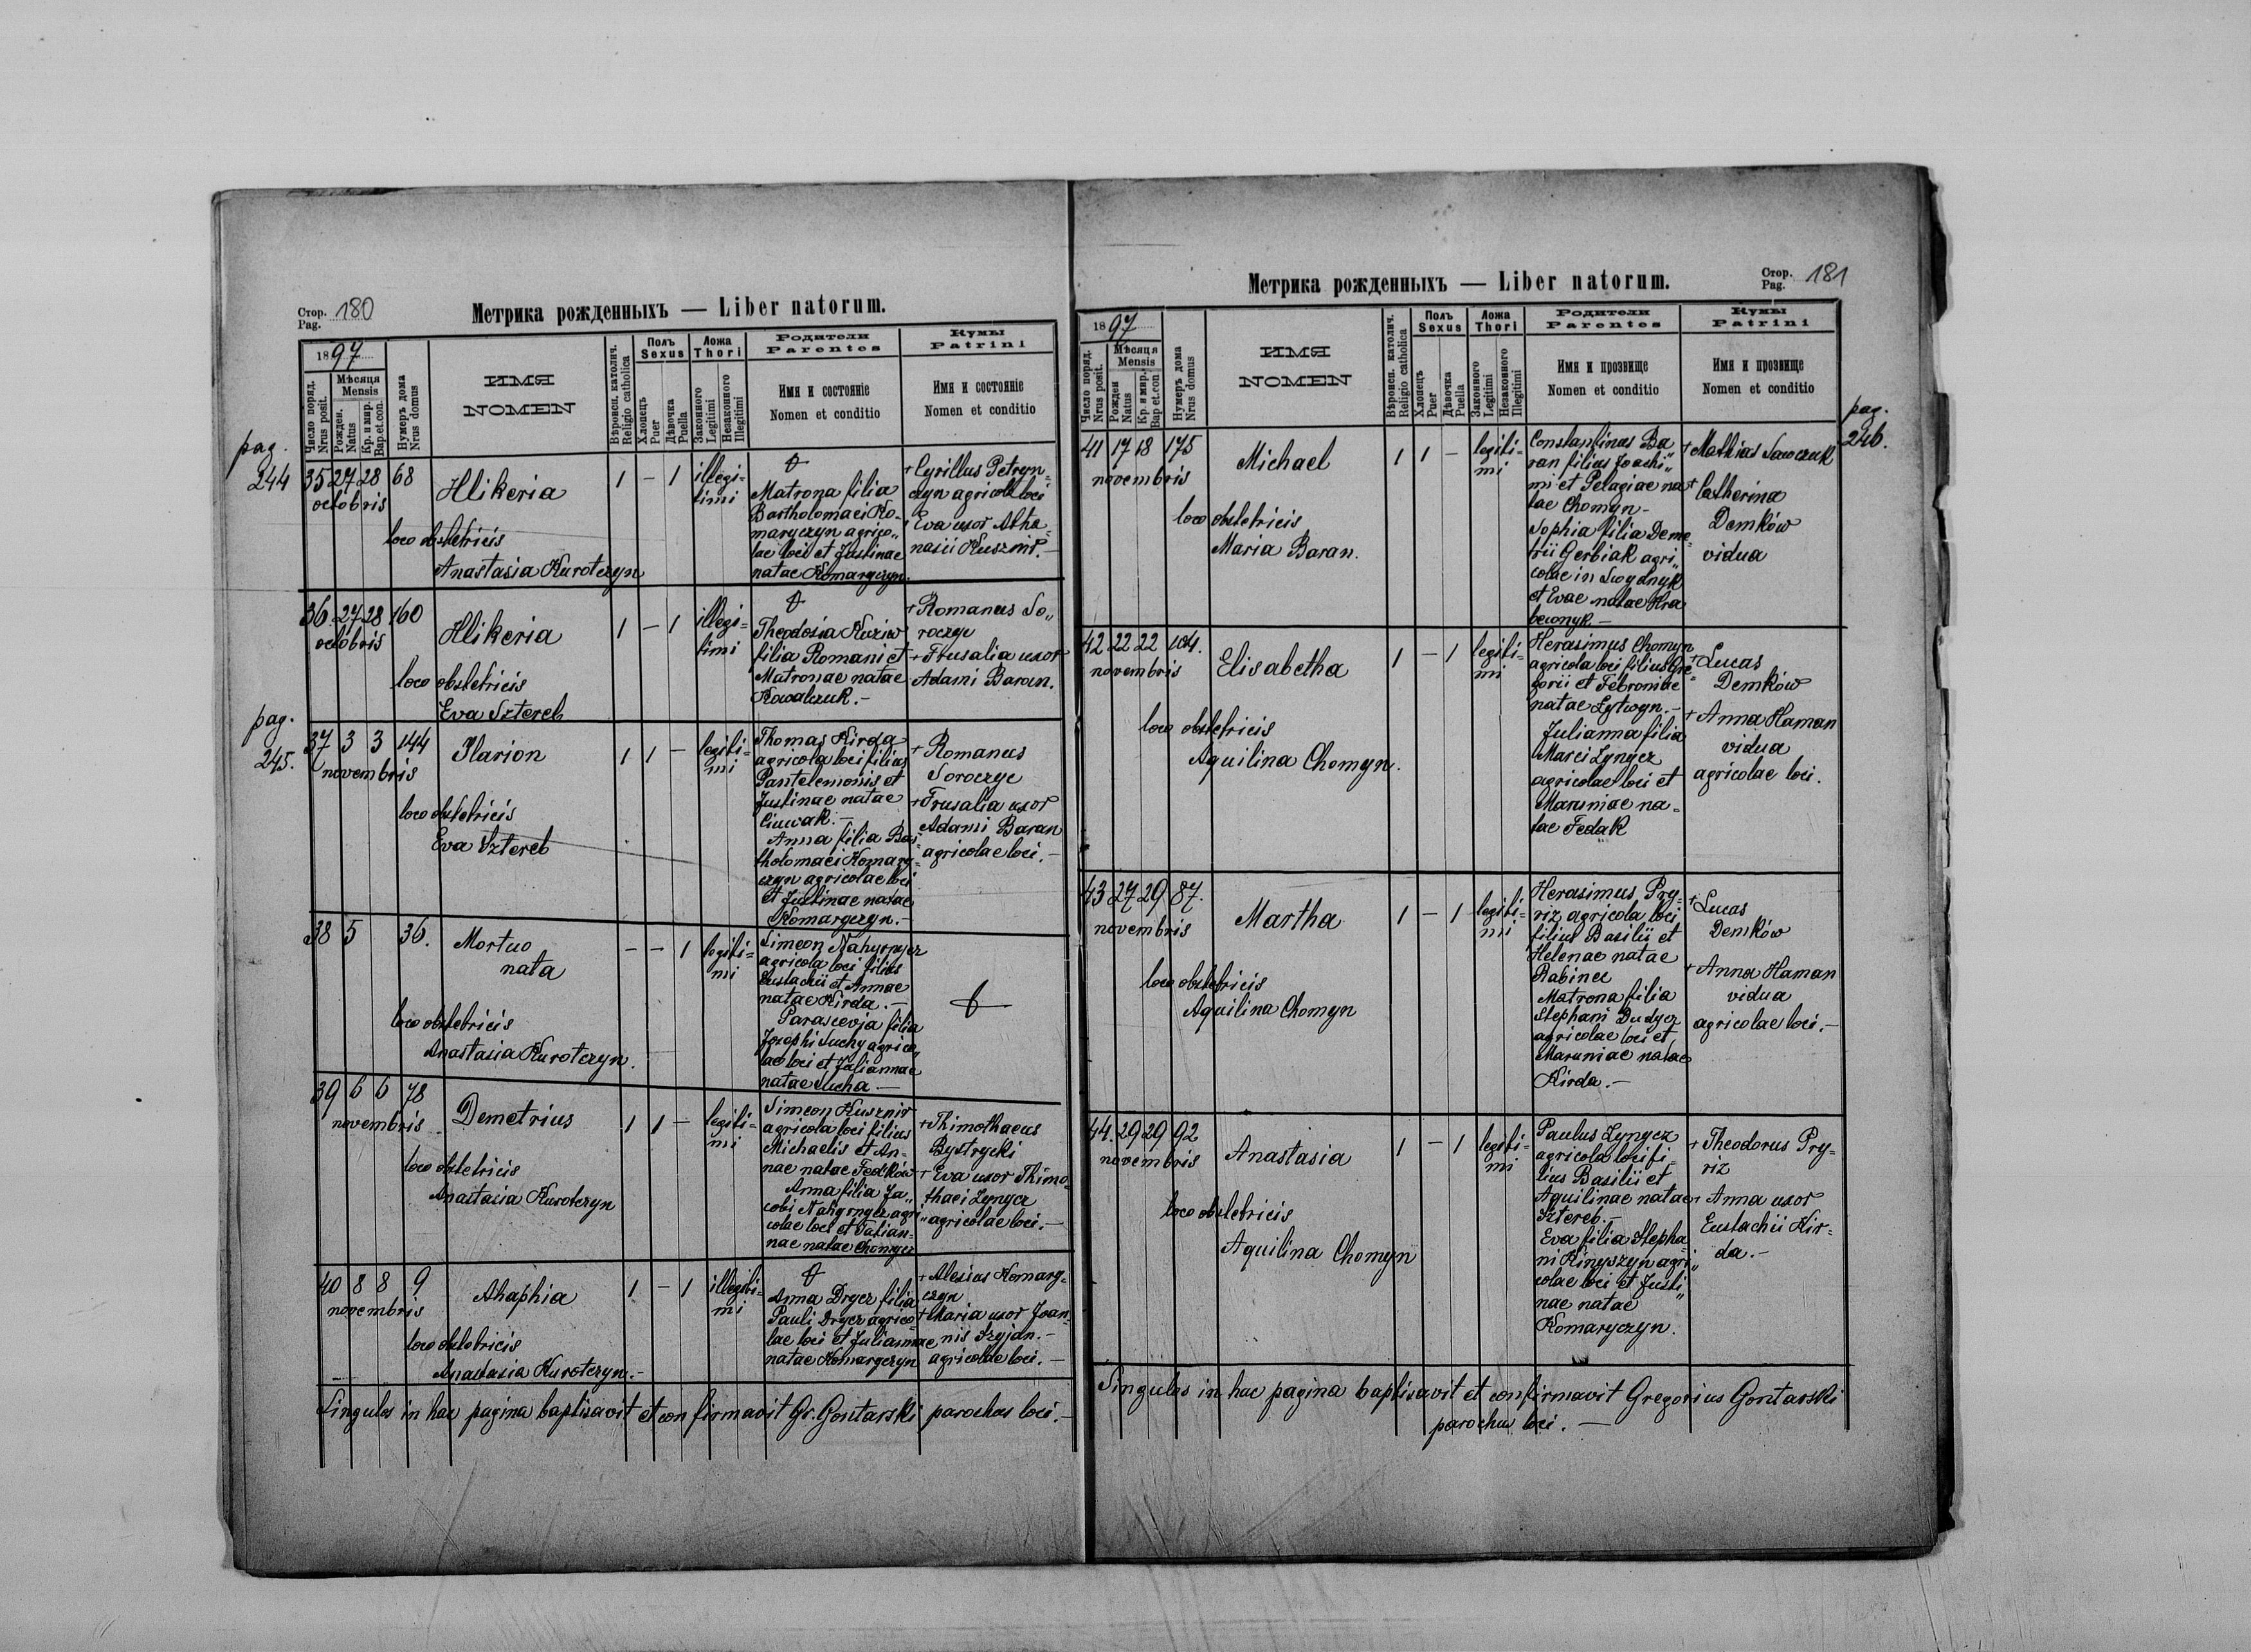 Стор. 180
Pag.
Метрика рожденныхъ — Liber natorum.
1897
Число поряд.
Nrus posit.
Мѣсяця
Mensis
Рожден.
Natus
Кр. и мир.
Bap.et.con.
Нумеръ дома
Nrus domus
ИМЯ
NOMEN
Вѣроисп. католич.
Religio catholica
Полъ
Sexus
Хлопецъ
Puer
Дѣвочка
Puella
Ложа
Thori
Законного
Legitimi
Незаконного
Illegitimi
Родители
Parentes
Имя и состояніе
Nomen et conditio
Кумы
Patrini
Имя и состояніе
Nomen et conditio
pag.
244
35 27 28 68
octobris
Hlikeria
1 — 1 illegi-
timi
loco obstetricis
Anastasia Kurotczyn
Matrona filia
Bartholomaei Ko-
maryczyn agrico„
lae loci et Justinae
natae Komaryczyn.
+ Cyrillus Petryn-
czyn agricola loci
Eva uxor Atha-
nasii Kusznir. —
36 27 28 160
octobris
Hlikeria
1 — 1 illegi-
timi
loco obstetricis
Eva Sztereb
Theodosia Kuziw
filia Romani et
Matronae natae
Kowalczuk. —
+ Romanus So„
roczyc
+ Frusalia uxor
Adami Baran.
pag.
245.
37 3 3 144
novembris
Ilarion
1 1 — legiti-
mi
loco obstetricis
Eva Sztereb
Thomas Kirda
agricola loci filius
Pantelemonis et
Justinae natae
Ciuwak. —
Anna filia Bar-
tholomaei Komary-
czyn agricolae loci
et Justinae natae
Komaryczyn. —
+ Romanus
Soroczyc
+ Frusalia uxor
Adami Baran
agricolae loci. —
38 5 36.
Mortuo
nata
— — 1 legiti-
mi
loco obstetricis
Anastasia Kurotczyn.
Simeon Nahyrnyez
agricola loci filius
Eustachii et Annae
natae Kirda. —
Parascevja filia
Josephi Suchy agrico„
lae loci et Juliannae
natae Sucha —
39 6 6 78
novembris
Demetrius
1 1 — legiti-
mi
loco obstetricis
Anastasia Kurotczyn
Simeon Kusznir
agricola loci filius
Michaelis et An-
nae natae Fedków
Anna filia Ja„
cobi Nahyrnyez agri„
colae loci et Tatian-
nae natae Chomycz
+ Thimothaeus
Bystrycki
+ Eva uxor Thimo-
thaei Zynycz
agricolae loci. —
40 8 8 9
novembris
Ahaphia
1 — 1 illegiti-
mi
loco obstetricis
Anastasia Kurotczyn. —
Anna Drycz filia
Pauli Drycz agrico-
lae loci et Juliannae
natae Komaryczyn
+ Alesius Komary-
czyn
+ Maria uxor Joan-
nis Szyjan. —
agricolae loci. —
Singulos in hac pagina baptisavit et confirmavit Gr. Gontarski parochus loci. —
Стор. 181
Pag.
Метрика рожденныхъ — Liber natorum.
1897
Число поряд.
Nrus posit.
Мѣсяця
Mensis
Рожден
Natus
Кр. и мир.
Bap et.con
Нумеръ дома
Nrus domus
ИМЯ
NOMEN
Вѣроисп. католич.
Religio catholica
Полъ
Sexus
Хлопецъ
Puer
Дѣвочка
Puella
Ложа
Thori
Законного
Legitimi
Незаконного
Illegitimi
Родители
Parentes
Имя и прозвище
Nomen et conditio
Кумы
Patrini
Имя и прозвище
Nomen et conditio
pag.
246.
41 17 18 175
novembris
Michael
1 1 — legiti-
mi
loco obstetricis
Maria Baran.
Constantinus Ba„
ran filius Joachi„
mi et Pelagiae na
tae Chomyn —
Sophia filia Deme-
trii Gerbiak agri„
colae in Swydnyk
et Evae natae Hra
bewnyk. —
+ Mathias Sawczuk
+ Catherina
Demków
vidua
42 22 22 104.
novembris
Elisabetha
1 — 1 legiti-
mi
loco obstetricis
Aquilina Chomyn.
Herasimus Chomyn
agricola loci filius Gre-
gorii et Febroniae
natae Lytwyn. —
Julianna filia
Marci Zynycz
agricolae loci et
Maruniae na-
tae Fedak
+ Lucas
Demków
+ Anna Haman
vidua
agricolae loci.
43 27 29 87.
novembris
Martha
1 — 1 legiti-
mi
loco obstetricis
Aquilina Chomyn
Herasimus Pry-
riz agricola loci
filius Basilii et
Helenae natae
Rabinec
Matrona filia
Stephani Dudycz
agricolae loci et
Maruniae natae
Kirda. —
+ Lucas
Demków
+ Anna Haman
vidua
agricolae loci. —
44. 29 29 92
novembris
Anastasia
1 — 1 legiti-
mi
loco obstetricis
Aquilina Chomyn
Paulus Zynycz
agricola loci fi-
lius Basilii et
Aquilinae natae
Sztereb. —
Eva filia Stepha-
ni Kinyszyn agri„
colae loci et Justi„
nae natae
Komaryczyn.
+ Theodorus Pry-
riz
+ Anna uxor
Eustachii Kir-
da. —
Singulos in hac pagina baptisavit et confirmavit Gregorius Gontarski
parochus loci. —